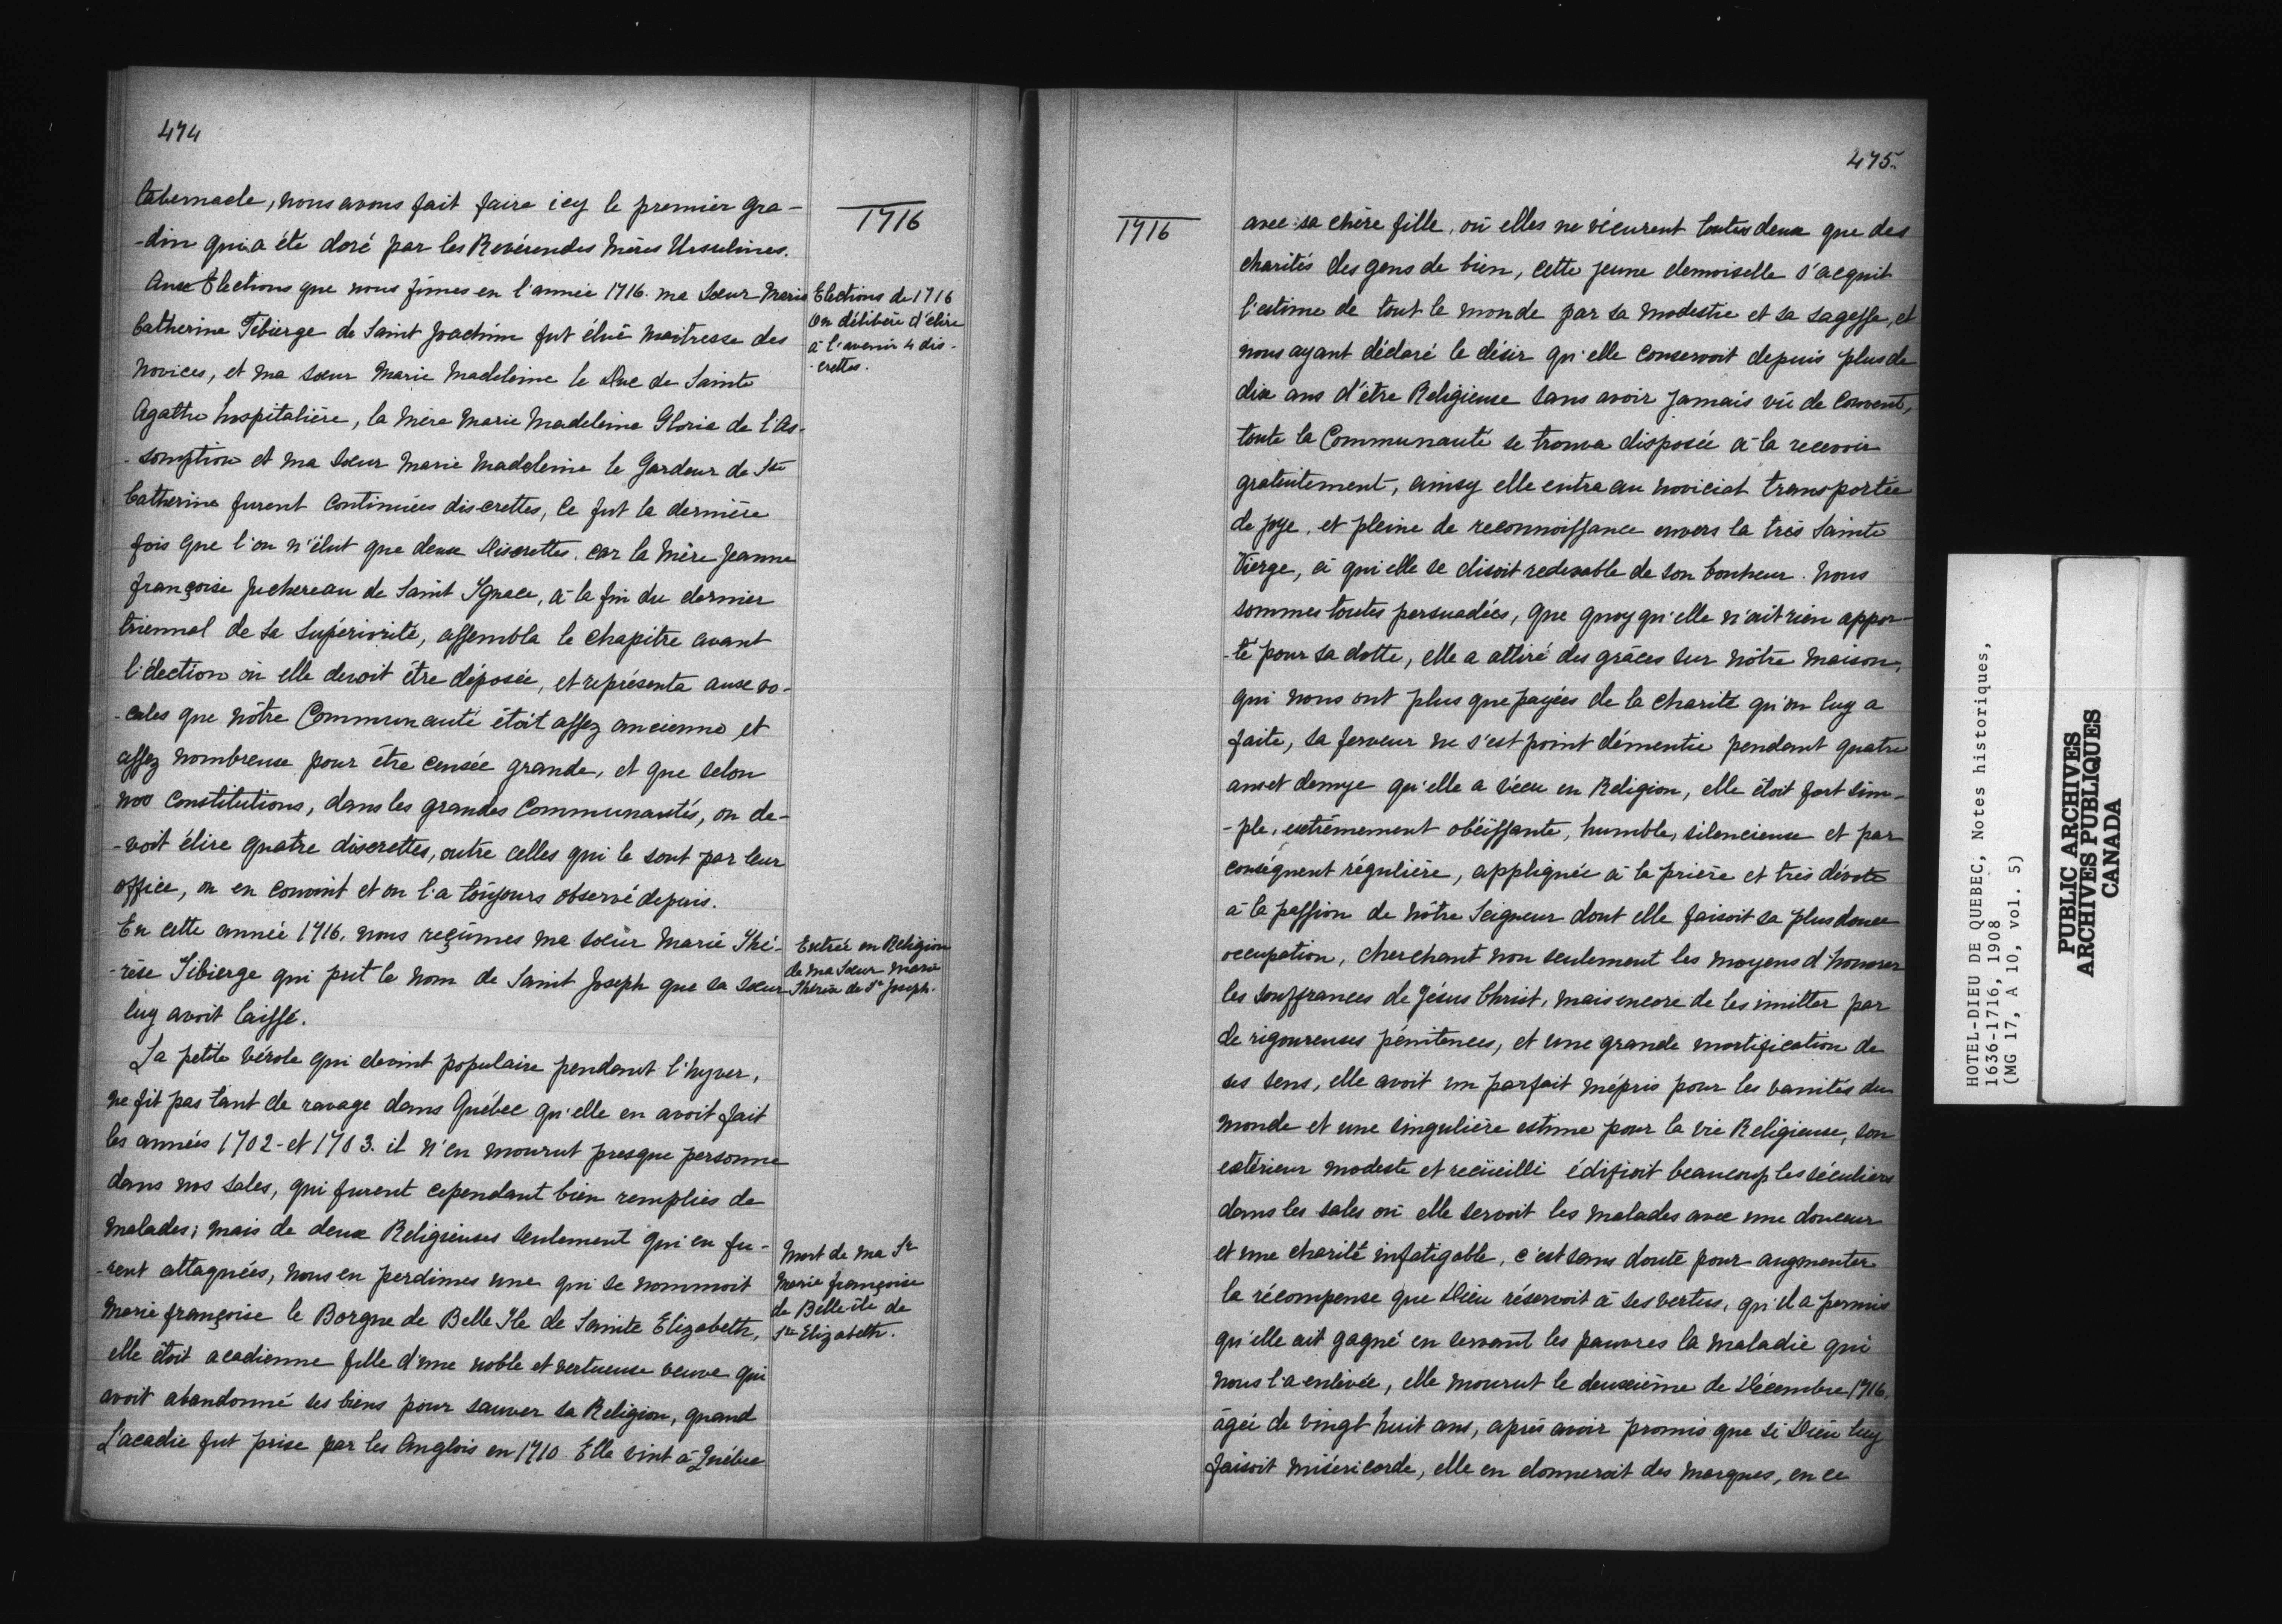 474
1716
tabernacle, nous avons fait faire icy le premier gra-
-din qui a été doré par les Revérendes Mères Ursulines.
Aux Elections que nous fimes en l'année 1716. ma Sœur Marie
Catherine Tibierge de Saint Joachim fut éluë maitresse des
Novices, et ma sœur Marie Madeleine le Duc de Sainte
Agathe hospitalière, la Mère Marie Madeleine Gloria de l'As-
-somption et ma Sœur Marie Madeleine le Gardeur de Ste
Catherine furent continuées discrettes, ce fut la dernière
fois que l'on n'élut que deux Discrettes. car la Mère Jeanne
françoise Juchereau de Saint Ignace, à la fin du dernier
triennal de sa Supériorité, assembla le chapitre avant
l'élection où elle devoit être déposée, et représenta aux vo-
-cales que nôtre Communauté étoit assez ancienne et
assez nombreuse pour être censée grande, et que selon
nos Constitutions, dans les grandes Communautés, on de-
-voit élire quatre discrettes, outre celles qui le sont par leur
office, on en convint et on l'a toûjours observé depuis.
En cette année 1716. nous reçûmes ma sœur Marie Thé-
-rèse Tibierge qui prit le nom de Saint Joseph que sa sœur
luy avoit laissé.
La petite vérole qui devint populaire pendant l'hyver,
ne fit pas tant de ravage dans Québec qu'elle en avoit fait
les années 1702- et 1703. il n'en mourut presque personne
dans nos sales, qui furent cependant bien remplies de
malades; mais de deux Religieuses seulement qui en fu-
-rent attaquées, nous en perdimes une qui se nommoit
Marie françoise le Borgne de Belle Ile de Sainte Elizabeth,
elle étoit acadienne fille d'une noble et vertueuse veuve qui
avoit abandonné ses biens pour sauver sa Religion, quand
L'acadie fut prise par les Anglois en 1710. Elle vint à Québec
Elections de 1716
On délibère d'élire
à l'avenir 4 dis-
-crettes.
Entrée en Religion
de ma Sœur Marie
Thérèse de St Joseph.
Mort de ma Sr
Marie françoise
de Belle-île de
Ste Elizabeth.
475.
1716
avec sa chère fille, où elles ne vécurent toutes deux que des
charités des gens de bien, cette jeune demoiselle s'acquit
l'estime de tout le monde par sa modestie et sa sagesse, et
nous ayant déclaré le désir qu'elle conservoit depuis plus de
dix ans d'être Religieuse sans avoir jamais vû de Couvent,
toute la Communauté se trouva disposée à la recevoir
gratuitement, ainsy elle entra au noviciat transportée
de joye, et pleine de reconnoissance envers la très Sainte
Vierge, à qui elle se disoit redevable de son bonheur. Nous
sommes toutes persuadées, que quoy qu'elle n'ait rien appor-
-té pour sa dotte, elle a attiré des grâces sur nôtre Maison,
qui nous ont plus que payées de la charité qu'on luy a
faite, sa ferveur ne s'est point démentie pendant quatre
ans et demye qu'elle a vécu en Religion, elle étoit fort sim-
-ple, extrêmement obéissante, humble, silencieuse et par
conséquent régulière, appliquée à la prière et très dévote
à la passion de Nôtre Seigneur dont elle faisoit sa plus douce
occupation, cherchant non seulement les moyens d'honorer
les souffrances de Jésus Christ, mais encore de les imitter par
de rigoureuses pénitences, et une grande mortification de
ses sens, elle avoit un parfait mépris pour les vanités du
monde et une singulière estime pour la vie Religieuse, son
extérieur modeste et recüeilli édifioit beaucoup les séculiers
dans les sales où elle servoit les malades avec une douceur
et une charité infatigable, c'est sans doute pour augmenter
la récompense que Dieu réservoit à ses vertus, qu'il a permis
qu'elle ait gagné en servant les pauvres la maladie qui
nous l'a enlevée, elle mourut le deuxième de Décembre 1716.
âgée de vingt huit ans, après avoir promis que si Dieu luy
faisoit miséricorde, elle en donneroit des marques, en ce
HOTEL-DIEU DE QUEBEC, Notes historiques,
1636-1716, 1908
(MG 17, A 10, vol. 5)
PUBLIC ARCHIVES
ARCHIVES PUBLIQUES
CANADA